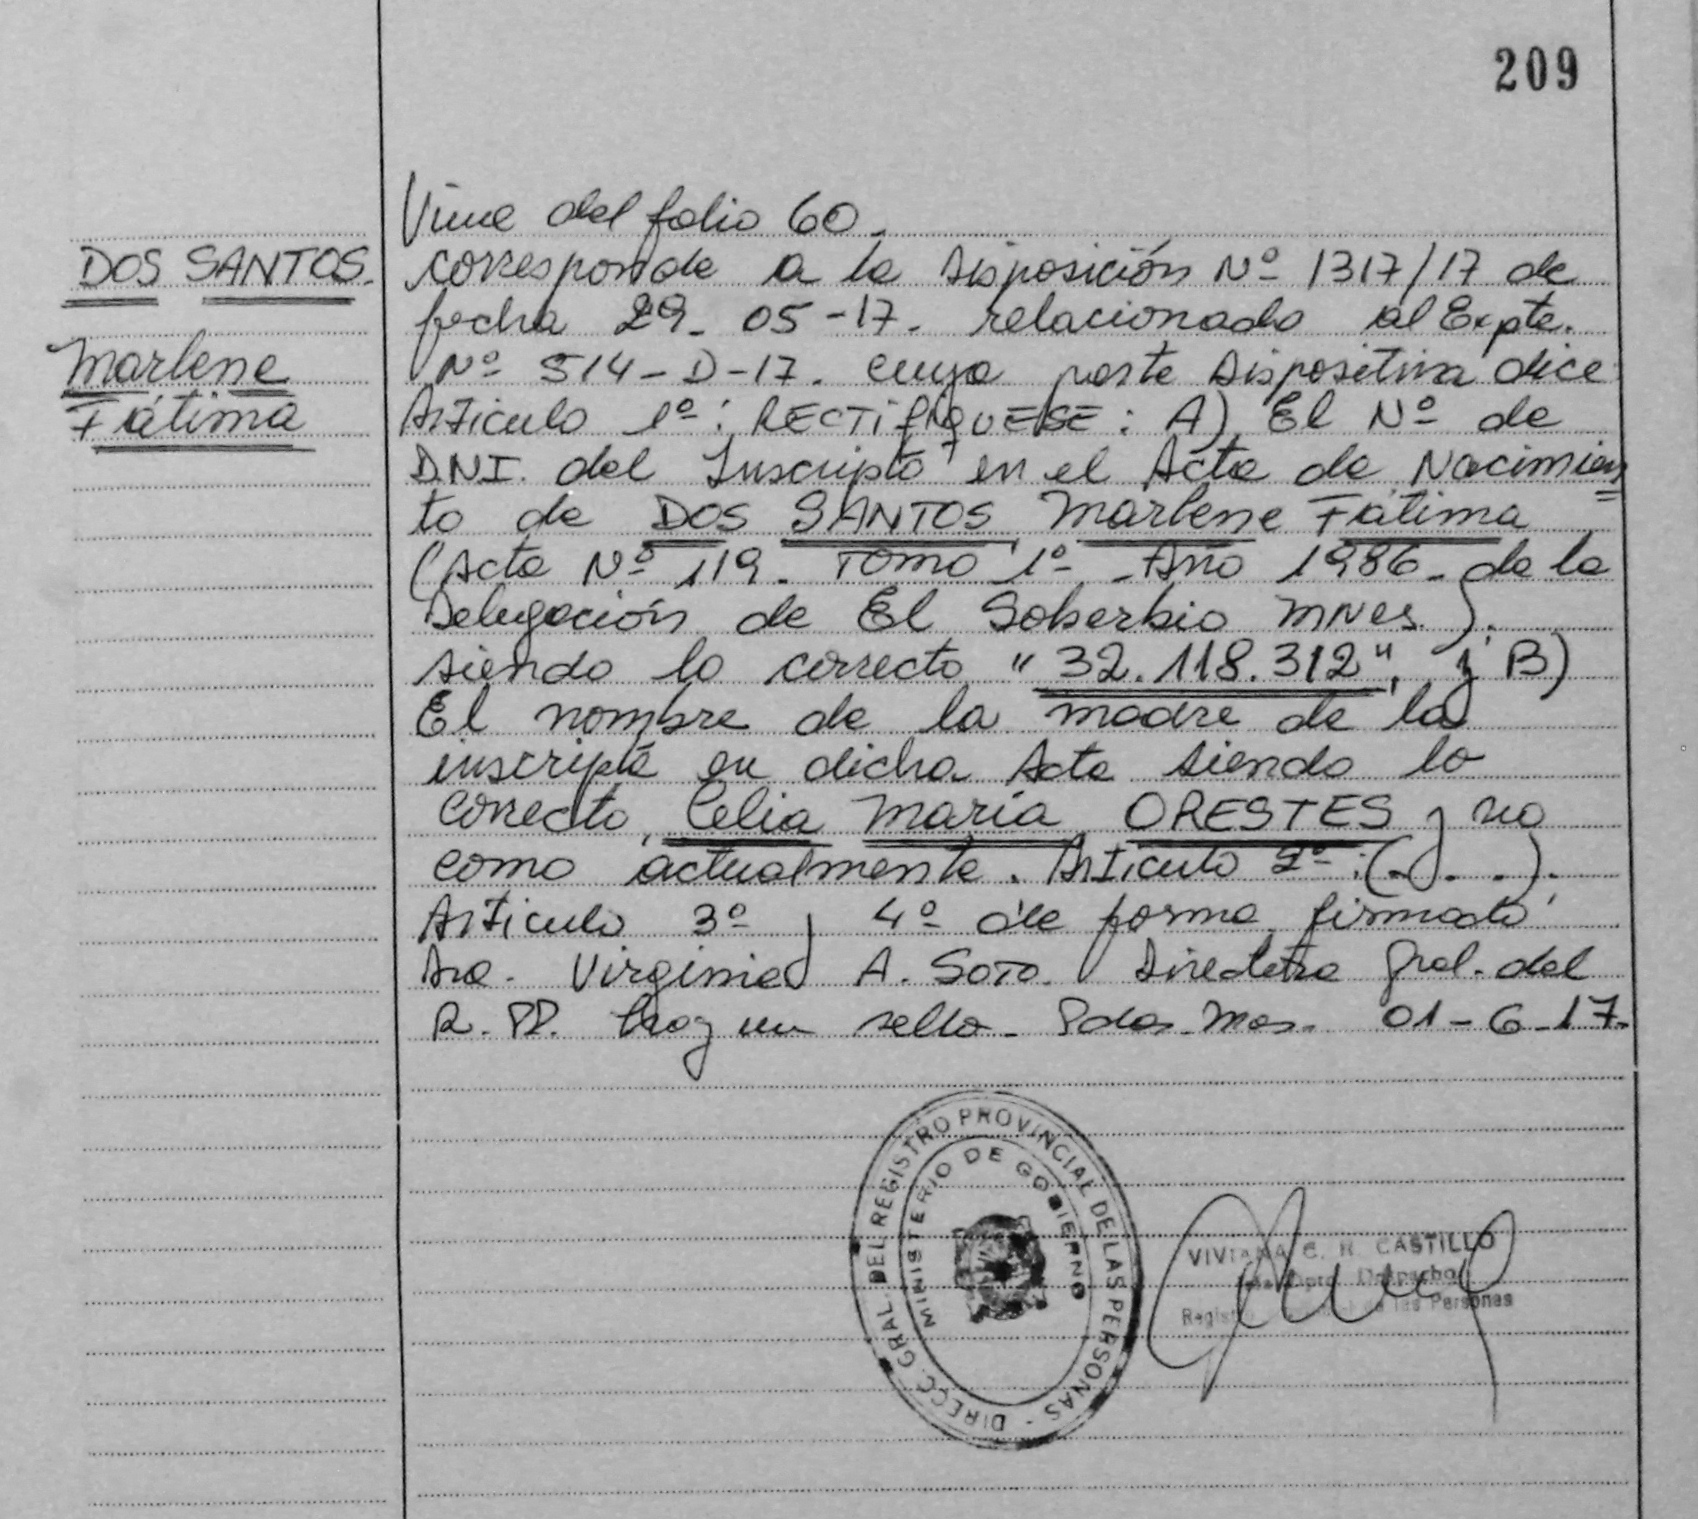 209
Viene del folio 60.
DOS SANTOS.
Marlene
Fátima
corresponde a la Disposición Nº 1317/17 de
fecha 29-05-17. relacionado al Expte.
Nº 514-D-17. cuya parte Dispositiva dice
Artículo 1º: RECTIFÍQUESE: A) El Nº de
D.N.I. del Inscripto en el Acta de Nacimien
to de DOS SANTOS, Marlene Fátima
(Acta Nº 119. Tomo 1º - Año 1986 - de la
Delegación de El Soberbio Mnes).
siendo lo correcto "32.118.312", y B)
El nombre de la madre de la
inscripta en dicha Acta siendo lo
correcto, Celia María ORESTES y no
como actualmente. Artículo 2º: (. . .).
Artículo 3º y 4º de forma, firmado
Dra. Virginia A. SOTO. Directora Gral. del
R.PP. hay un sello. Pdas. Mnes. 01-6-17.
DIRECC. GRAL. DEL REGISTRO PROVINCIAL DE LAS PERSONAS -
MINISTERIO DE GOBIERNO
VIVIANA C. R. CASTILLO
Dpto. Despacho
de las Personas